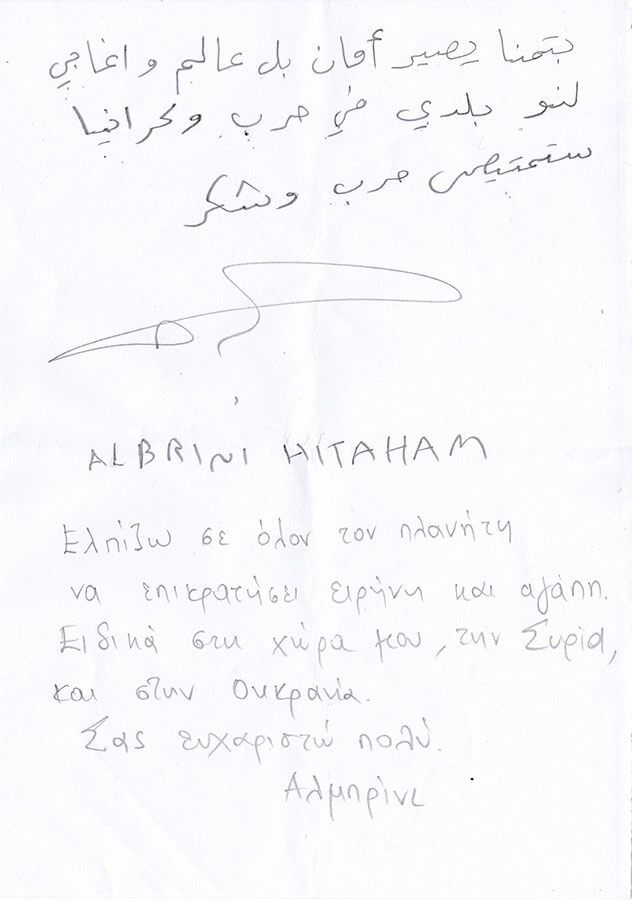 بتمنا يصير أمان بل عالم و
لنو بلدي في حرب و
حرب وشكر
ALBRINI HITAHAM
Ελπίζω σε όλον τον πλανήτη
να επικρατήσει ειρήνη και αγάπη.
Ειδικά στη χώρα μου, την Συρία,
και στην Ουκρανία.
Σας ευχαριστώ πολύ.
Αλμπρίνι